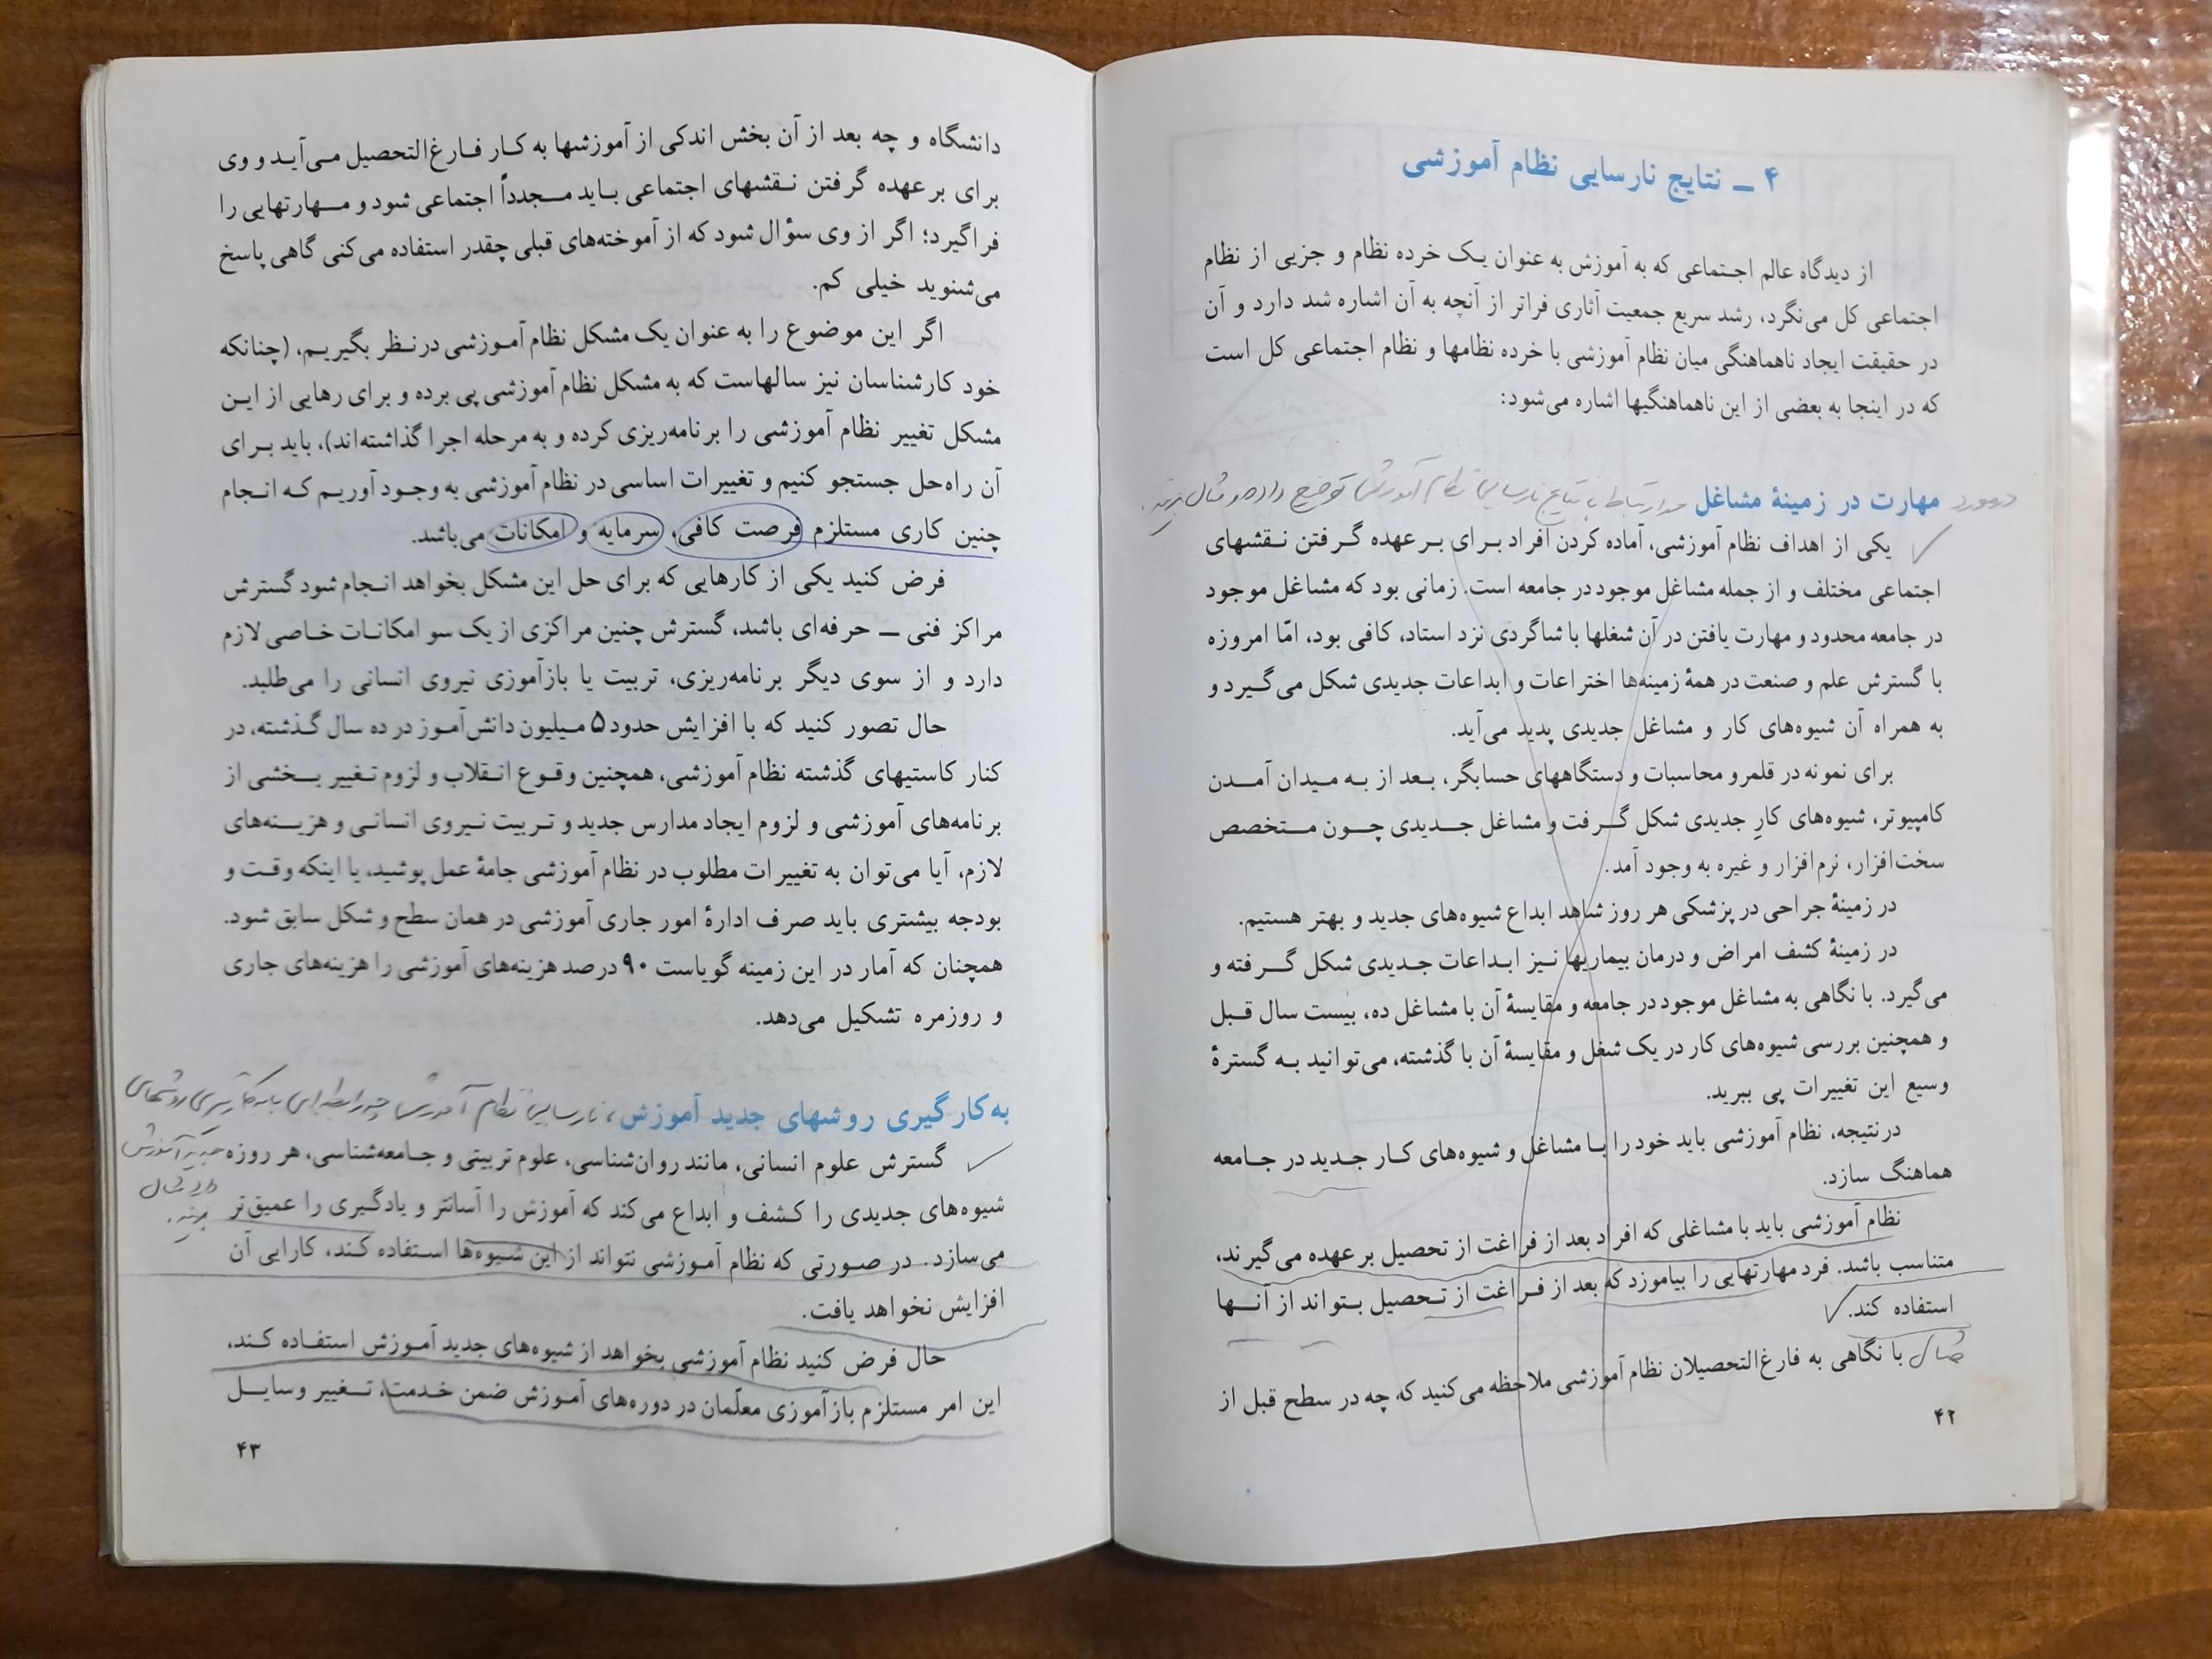 ۴ ــ نتایج نارسایی نظام آموزشی
از دیدگاه عالم اجتماعی که به آموزش به عنوان یک خرده نظام و جزیی از نظام
اجتماعی کل می‌نگرد، رشد سریع جمعیت آثاری فراتر از آنچه به آن اشاره شد دارد و آن
در حقیقت ایجاد ناهماهنگی میان نظام آموزشی با خرده نظامها و نظام اجتماعی کل است
که در اینجا به بعضی از این ناهماهنگیها اشاره می‌شود:
درمورد مهارت در زمینهٔ مشاغل در ارتباط با نتایج نارسایی نظام آموزشی توضیح داده و مثال بزنید.
یکی از اهداف نظام آموزشی، آماده کردن افراد برای بر عهده گرفتن نقشهای
اجتماعی مختلف و از جمله مشاغل موجود در جامعه است. زمانی بود که مشاغل موجود
در جامعه محدود و مهارت یافتن در آن شغلها با شاگردی نزد استاد، کافی بود، امّا امروزه
با گسترش علم و صنعت در همهٔ زمینه‌ها اختراعات و ابداعات جدیدی شکل می‌گیرد و
به همراه آن شیوه‌های کار و مشاغل جدیدی پدید می‌آید.
برای نمونه در قلمرو محاسبات و دستگاههای حسابگر، بعد از به میدان آمدن
کامپیوتر، شیوه‌های کارِ جدیدی شکل گرفت و مشاغل جدیدی چون متخصص
سخت‌افزار، نرم‌افزار و غیره به وجود آمد.
در زمینهٔ جراحی در پزشکی هر روز شاهد ابداع شیوه‌های جدید و بهتر هستیم.
در زمینهٔ کشف امراض و درمان بیماریها نیز ابداعات جدیدی شکل گرفته و
می‌گیرد. با نگاهی به مشاغل موجود در جامعه و مقایسهٔ آن با مشاغل ده، بیست سال قبل
و همچنین بررسی شیوه‌های کار در یک شغل و مقایسهٔ آن با گذشته، می‌توانید به گسترهٔ
وسیع این تغییرات پی ببرید.
درنتیجه، نظام آموزشی باید خود را با مشاغل و شیوه‌های کار جدید در جامعه
هماهنگ سازد.
نظام آموزشی باید با مشاغلی که افراد بعد از فراغت از تحصیل بر عهده می‌گیرند،
متناسب باشد. فرد مهارتهایی را بیاموزد که بعد از فراغت از تحصیل بتواند از آنها
استفاده کند.
مثال با نگاهی به فارغ‌التحصیلان نظام آموزشی ملاحظه می‌کنید که چه در سطح قبل از
۴۲
دانشگاه و چه بعد از آن بخش اندکی از آموزشها به کار فارغ‌التحصیل می‌آید و وی
برای بر عهده گرفتن نقشهای اجتماعی باید مجدداً اجتماعی شود و مهارتهایی را
فراگیرد؛ اگر از وی سؤال شود که از آموخته‌های قبلی چقدر استفاده می‌کنی گاهی پاسخ
می‌شنوید خیلی کم.
اگر این موضوع را به عنوان یک مشکل نظام آموزشی درنظر بگیریم، (چنانکه
خود کارشناسان نیز سالهاست که به مشکل نظام آموزشی پی برده و برای رهایی از این
مشکل تغییر نظام آموزشی را برنامه‌ریزی کرده و به مرحله اجرا گذاشته‌اند)، باید برای
آن راه‌حل جستجو کنیم و تغییرات اساسی در نظام آموزشی به وجود آوریم که انجام
چنین کاری مستلزم فرصت کافی، سرمایه و امکانات می‌باشد.
فرض کنید یکی از کارهایی که برای حل این مشکل بخواهد انجام شود گسترش
مراکز فنی ــ حرفه‌ای باشد، گسترش چنین مراکزی از یک سو امکانات خاصی لازم
دارد و از سوی دیگر برنامه‌ریزی، تربیت یا بازآموزی نیروی انسانی را می‌طلبد.
حال تصور کنید که با افزایش حدود ۵ میلیون دانش‌آموز در ده سال گذشته، در
کنار کاستیهای گذشته نظام آموزشی، همچنین وقوع انقلاب و لزوم تغییر بخشی از
برنامه‌های آموزشی و لزوم ایجاد مدارس جدید و تربیت نیروی انسانی و هزینه‌های
لازم، آیا می‌توان به تغییرات مطلوب در نظام آموزشی جامهٔ عمل پوشید، یا اینکه وقت و
بودجه بیشتری باید صرف ادارهٔ امور جاری آموزشی در همان سطح و شکل سابق شود.
همچنان که آمار در این زمینه گویاست ۹۰ درصد هزینه‌های آموزشی را هزینه‌های جاری
و روزمره تشکیل می‌دهد.
به‌کارگیری روشهای جدید آموزش، نارسایی نظام آموزشی چه رابطه‌ای با به‌کارگیری روشهای
جدید آموزش
دارد مثال
بزنید.
گسترش علوم انسانی، مانند روان‌شناسی، علوم تربیتی و جامعه‌شناسی، هر روزه
شیوه‌های جدیدی را کشف و ابداع می‌کند که آموزش را آسانتر و یادگیری را عمیق‌تر
می‌سازد. در صورتی که نظام آموزشی نتواند از این شیوه‌ها استفاده کند، کارایی آن
افزایش نخواهد یافت.
حال فرض کنید نظام آموزشی بخواهد از شیوه‌های جدید آموزش استفاده کند،
این امر مستلزم بازآموزی معلّمان در دوره‌های آموزش ضمن خدمت، تغییر وسایل
۴۳